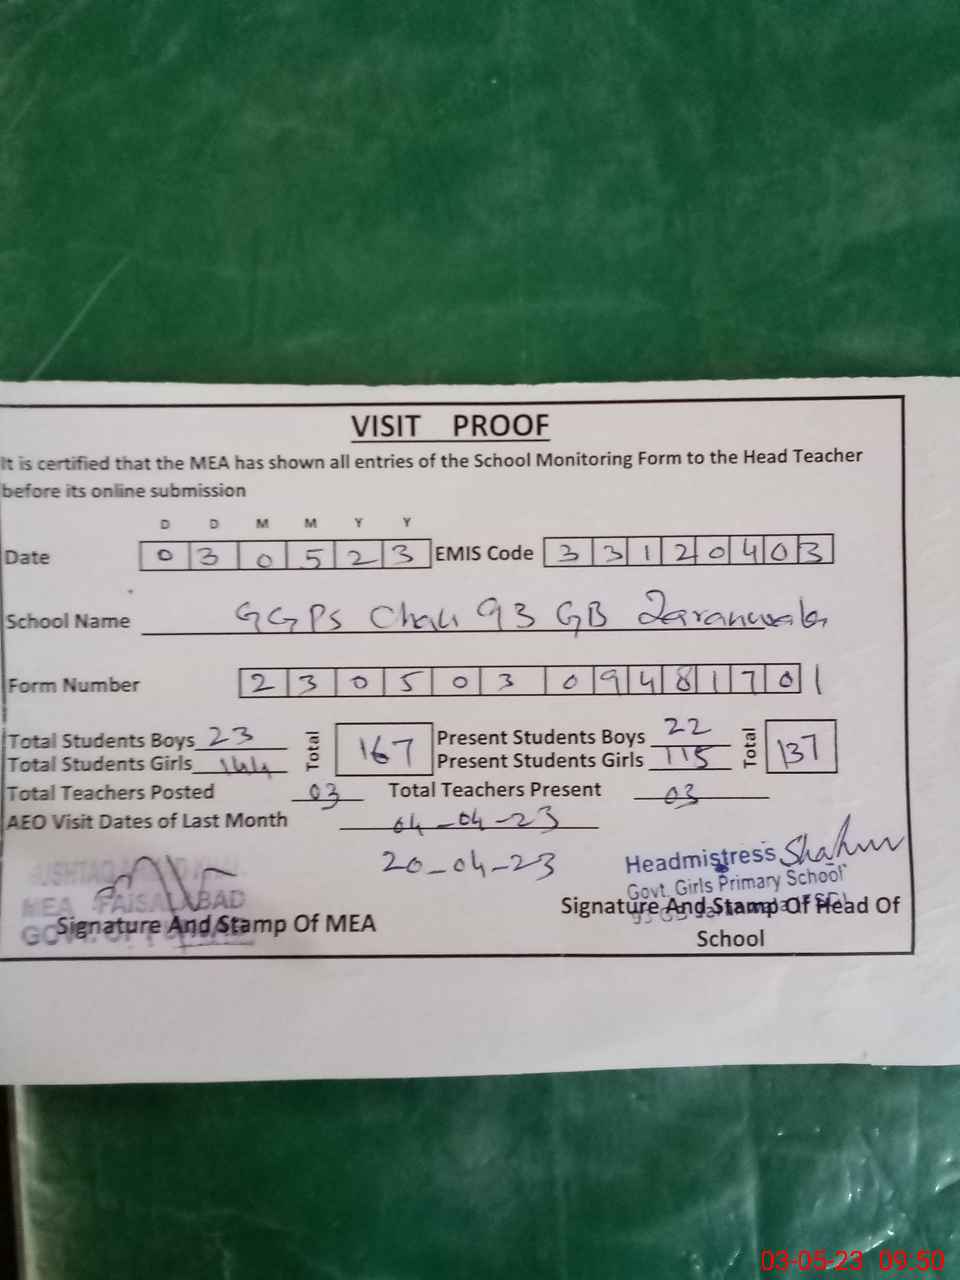 VISIT PROOF
It is certified that the MEA has shown all entries of the School Monitoring Form to the Head Teacher
before its online submission
D D M M Y Y
Date 0 3 0 5 2 3 EMIS Code 3 3 1 2 0 4 0 3
School Name GGPS Chak 93 GB Jaranwala
Form Number 2 3 0 5 0 3 0 9 4 8 1 7 0 1
Total Students Boys 23 Total 167 Present Students Boys 22 Total 137
Total Students Girls 144 Present Students Girls 115
Total Teachers Posted 03 Total Teachers Present 03
AEO Visit Dates of Last Month 04-04-23
20-04-23
Headmistress
Govt. Girls Primary School
MEA FAISALABAD
Signature And Stamp Of MEA
Signature And Stamp Of Head Of
School
03-05-23 09:50